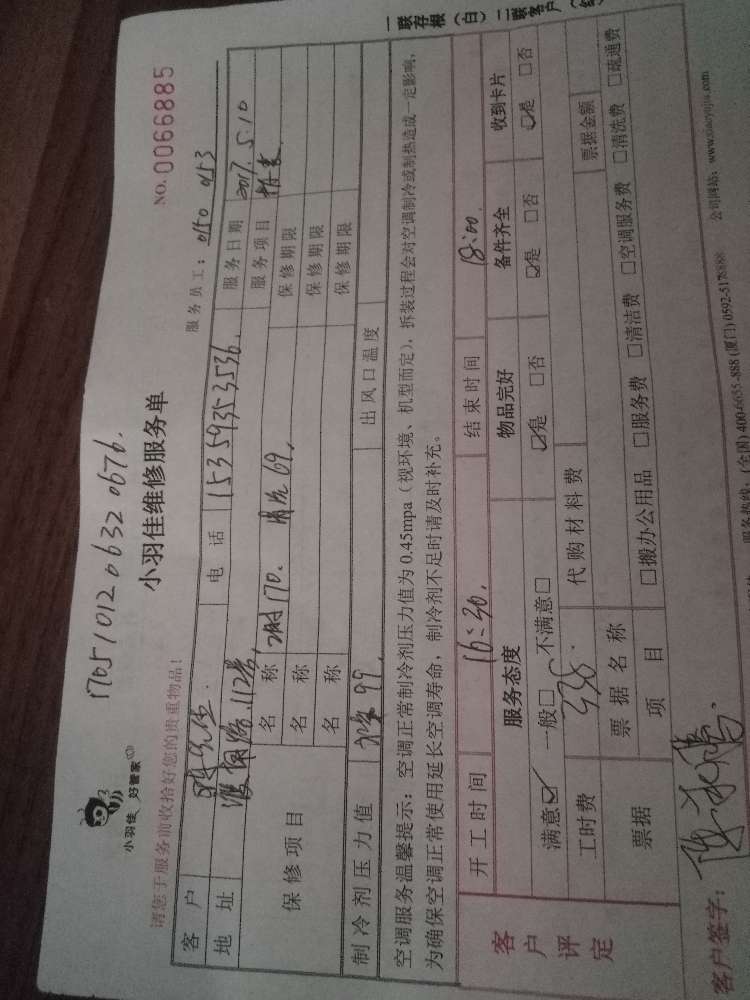 一联存根（白）二联客户（
170510120632 0676.
小羽佳 好管家
小羽佳维修服务单
NO. 0066885
请您于服务前收拾好您的贵重物品！
服务员工：0150 0153
客户 陈先生. 电话 15359353536. 服务日期 2017.5.10
地址 112号, 服务项目
保修项目 名称 2时170. 清洗69. 保修期限
名称 保修期限
名称 保修期限
制冷剂压力值 99 出风口温度
空调服务温馨提示：空调正常制冷剂压力值为0.45mpa（视环境、机型而定），拆装过程会对空调制冷或制热造成一定影响，
为确保空调正常使用延长空调寿命，制冷剂不足时请及时补充。
开工时间 16:30. 结束时间 18:00.
客户评定 服务态度 物品完好 备件齐全 收到卡片
满意☑ 一般□ 不满意□ ☑是 □否 ☑是 □否 ☑是 □否
工时费 338. 代购材料费
票据 票据名称 票据金额
项目 □搬办公用品 □服务费 □清洁费 □空调服务费 □清洗费 □疏通费
客户签字：
服务热线：(全国) 400-6655-888 (厦门) 0592-5178888 公司网站：www.xiaoyujia.com